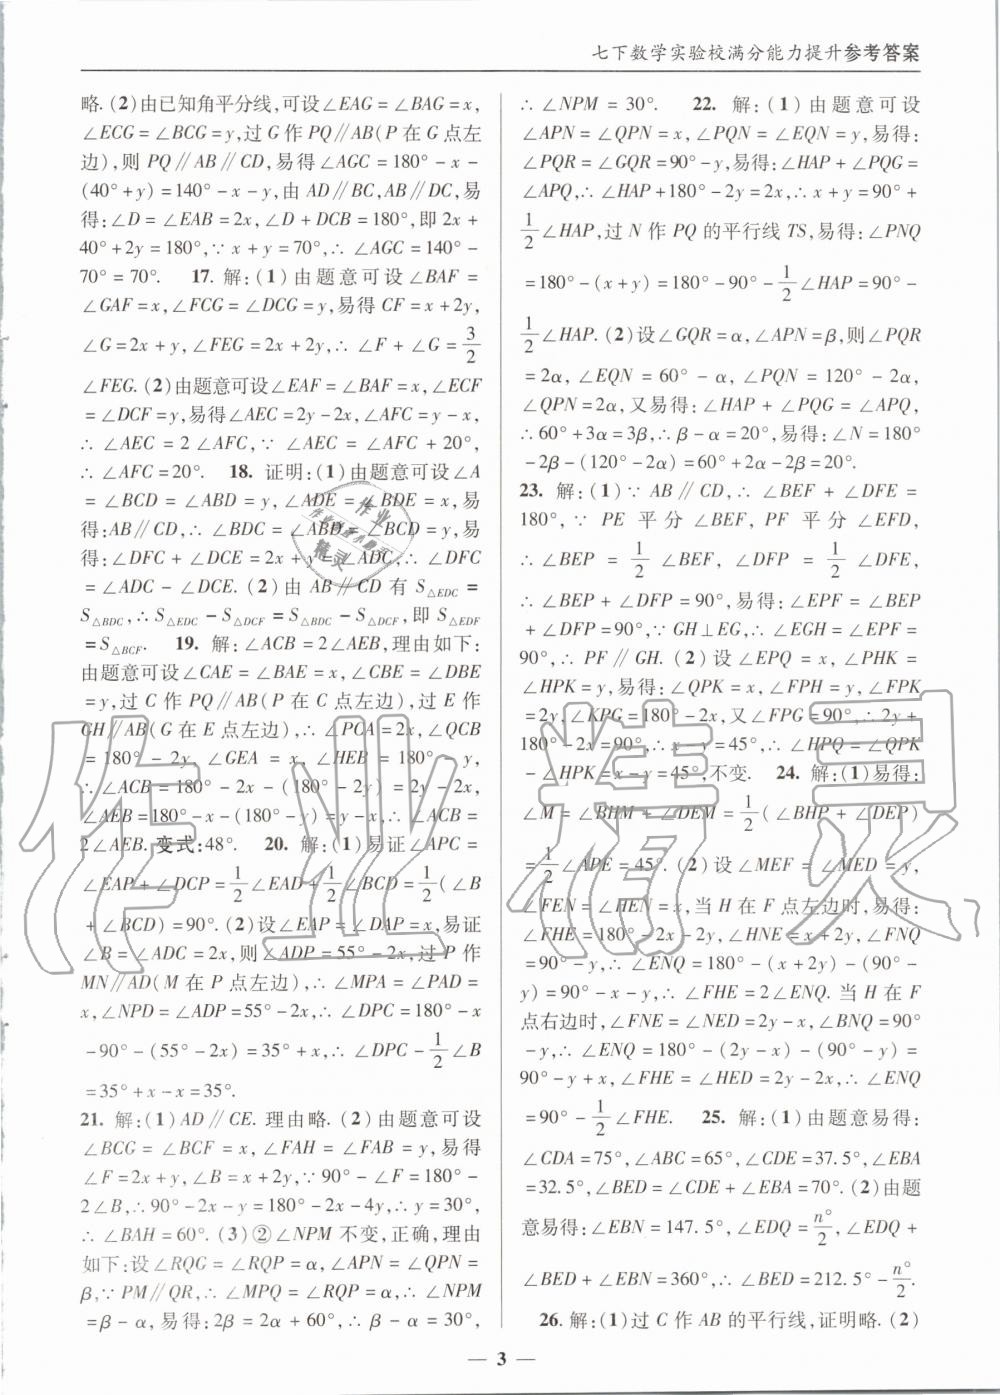 七下数学实验校满分能力提升参考答案
略. (2)由已知角平分线,可设∠EAG=∠BAG=x,
∠ECG=∠BCG=y,过G作PQ∥AB(P在G点左
边),则PQ∥AB∥CD,易得∠AGC=180°-x-
(40°+y)=140°-x-y,由AD∥BC,AB∥DC,易
得:∠D=∠EAB=2x,∠D+∠DCB=180°,即2x+
40°+2y=180°,∵x+y=70°,∴∠AGC=140°-
70°=70°. 17. 解:(1)由题意可设∠BAF=
∠GAF=x,∠FCG=∠DCG=y,易得CF=x+2y,
∠G=2x+y,∠FEG=2x+2y,∴∠F+∠G=3/2
∠FEG. (2)由题意可设∠EAF=∠BAF=x,∠ECF
=∠DCF=y,易得∠AEC=2y-2x,∠AFC=y-x,
∴∠AEC=2∠AFC,∵∠AEC=∠AFC+20°,
∴∠AFC=20°. 18. 证明:(1)由题意可设∠A
=∠BCD=∠ABD=y,∠ADE=∠BDE=x,易
得:AB∥CD,∴∠BDC=∠ABD=∠BCD=y,易
得:∠DFC+∠DCE=2x+y=∠ADC,∴∠DFC
=∠ADC-∠DCE. (2)由AB∥CD有S△EDC=
S△BDC,∴S△EDC-S△DCF=S△BDC-S△DCF,即S△EDF
=S△BCF. 19. 解:∠ACB=2∠AEB,理由如下:
由题意可设∠CAE=∠BAE=x,∠CBE=∠DBE
=y,过C作PQ∥AB(P在C点左边),过E作
GH∥AB(G在E点左边),∴∠PCA=2x,∠QCB
=180°-2y,∠GEA=x,∠HEB=180°-y,
∴∠ACB=180°-2x-(180°-2y)=2y-2x,
∠AEB=180°-x-(180°-y)=y-x,∴∠ACB=
2∠AEB. 变式:48°. 20. 解:(1)易证∠APC=
∠EAP+∠DCP=1/2∠EAD+1/2∠BCD=1/2(∠B
+∠BCD)=90°. (2)设∠EAP=∠DAP=x,易证
∠B=∠ADC=2x,则∠ADP=55°-2x,过P作
MN∥AD(M在P点左边),∴∠MPA=∠PAD=
x,∠NPD=∠ADP=55°-2x,∴∠DPC=180°-x
-90°-(55°-2x)=35°+x,∴∠DPC-1/2∠B
=35°+x-x=35°.
21. 解:(1)AD∥CE. 理由略. (2)由题意可设
∠BCG=∠BCF=x,∠FAH=∠FAB=y,易得
∠F=2x+y,∠B=x+2y,∵90°-∠F=180°-
2∠B,∴90°-2x-y=180°-2x-4y,∴y=30°,
∴∠BAH=60°. (3)②∠NPM不变,正确,理由
如下:设∠RQG=∠RQP=α,∠APN=∠QPN=
β,∵PM∥QR,∴∠MPQ=∠RQP=α,∴∠NPM
=β-α,易得:2β=2α+60°,∴β-α=30°,
∴∠NPM=30°. 22. 解:(1)由题意可设
∠APN=∠QPN=x,∠PQN=∠EQN=y,易得:
∠PQR=∠GQR=90°-y,易得:∠HAP+∠PQG=
∠APQ,∴∠HAP+180°-2y=2x,∴x+y=90°+
1/2∠HAP,过N作PQ的平行线TS,易得:∠PNQ
=180°-(x+y)=180°-90°-1/2∠HAP=90°-
1/2∠HAP. (2)设∠GQR=α,∠APN=β,则∠PQR
=2α,∠EQN=60°-α,∠PQN=120°-2α,
∠QPN=2α,又易得:∠HAP+∠PQG=∠APQ,
∴60°+3α=3β,∴β-α=20°,易得:∠N=180°
-2β-(120°-2α)=60°+2α-2β=20°.
23. 解:(1)∵AB∥CD,∴∠BEF+∠DFE=
180°,∵PE平分∠BEF,PF平分∠EFD,
∴∠BEP=1/2∠BEF,∠DFP=1/2∠DFE,
∴∠BEP+∠DFP=90°,易得:∠EPF=∠BEP
+∠DFP=90°,∵GH⊥EG,∴∠EGH=∠EPF=
90°,∴PF∥GH. (2)设∠EPQ=x,∠PHK=
∠HPK=y,易得:∠QPK=x,∠FPH=y,∠FPK
=2y,∠KPG=180°-2x,又∠FPG=90°,∴2y+
180°-2x=90°,∴x-y=45°,∴∠HPQ=∠QPK
-∠HPK=x-y=45°,不变. 24. 解:(1)易得:
∠M=∠BHM+∠DEM=1/2(∠BHP+∠DEP)
=1/2∠APE=45°. (2)设∠MEF=∠MED=y,
∠FEN=∠HEN=x,当H在F点左边时,易得:
∠FHE=180°-2x-2y,∠HNE=x+2y,∠FNQ
=90°-y,∴∠ENQ=180°-(x+2y)-(90°-
y)=90°-x-y,∴∠FHE=2∠ENQ. 当H在F
点右边时,∠FNE=∠NED=2y-x,∠BNQ=90°
-y,∴∠ENQ=180°-(2y-x)-(90°-y)=
90°-y+x,∠FHE=∠HED=2y-2x,∴∠ENQ
=90°-1/2∠FHE. 25. 解:(1)由题意易得:
∠CDA=75°,∠ABC=65°,∠CDE=37.5°,∠EBA
=32.5°,∠BED=∠CDE+∠EBA=70°. (2)由题
意易得:∠EBN=147.5°,∠EDQ=n°/2,∠EDQ+
∠BED+∠EBN=360°,∴∠BED=212.5°-n°/2.
26. 解:(1)过C作AB的平行线,证明略. (2)
— 3 —
作业精灵